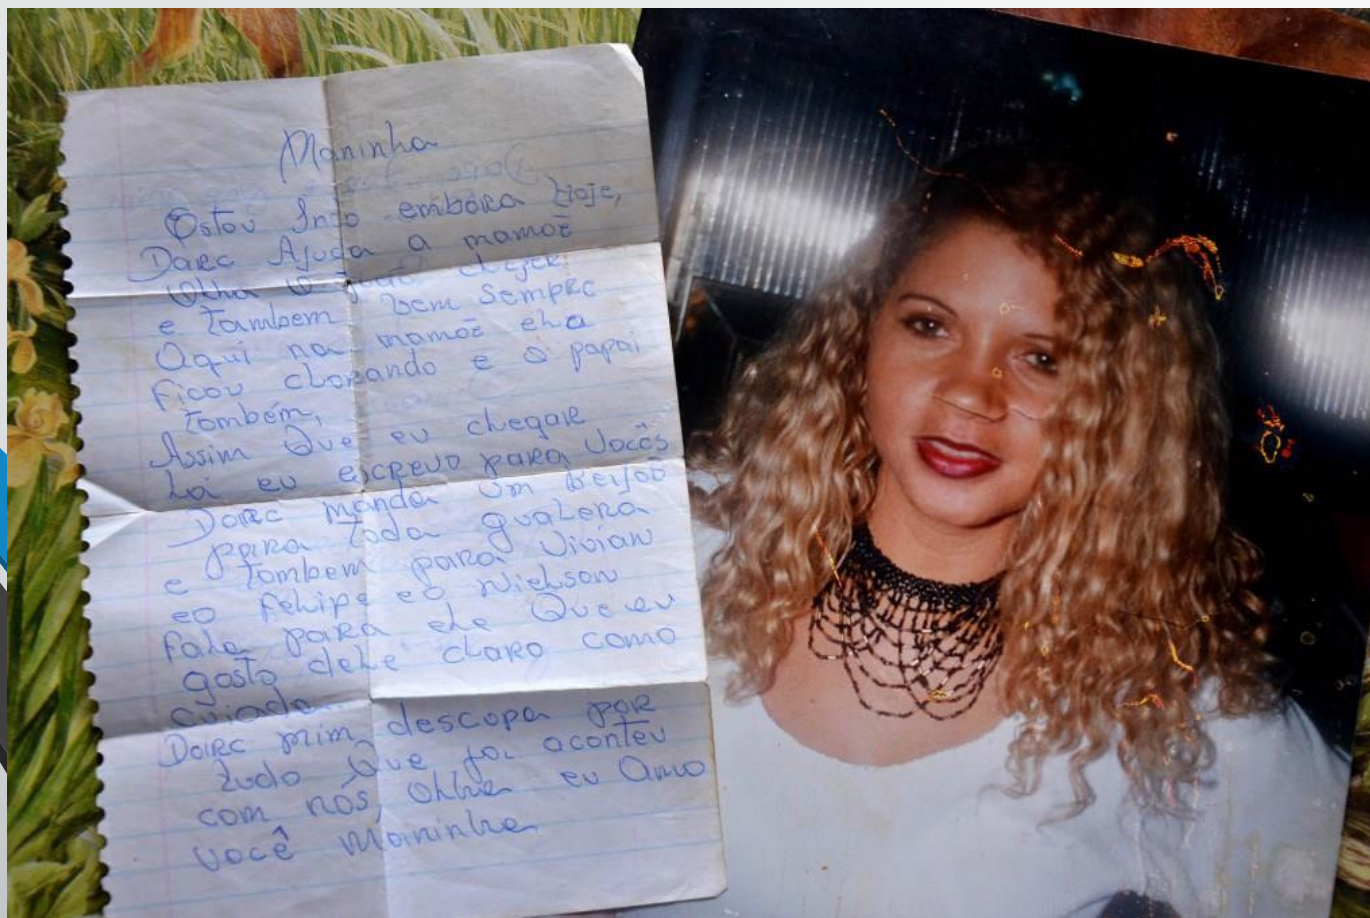 Maninha
Estou Indo embora Hoje,
Darc Ajuda a mamãe
Olha O João chegar
e também vem sempre
Aqui na mamãe ela
ficou chorando e o papai
também,
Assim Que eu chegar
Lá eu escrevo para Vocês
Darc manda um Beijoo
para toda gualera
e também para Vivian
eo felipe eo Nielson
fala para ele Que eu
gosto dele claro como
cuiado
Darc mim descupa por
tudo Que foi aconteu
com nós, Olha eu Amo
você Maninha